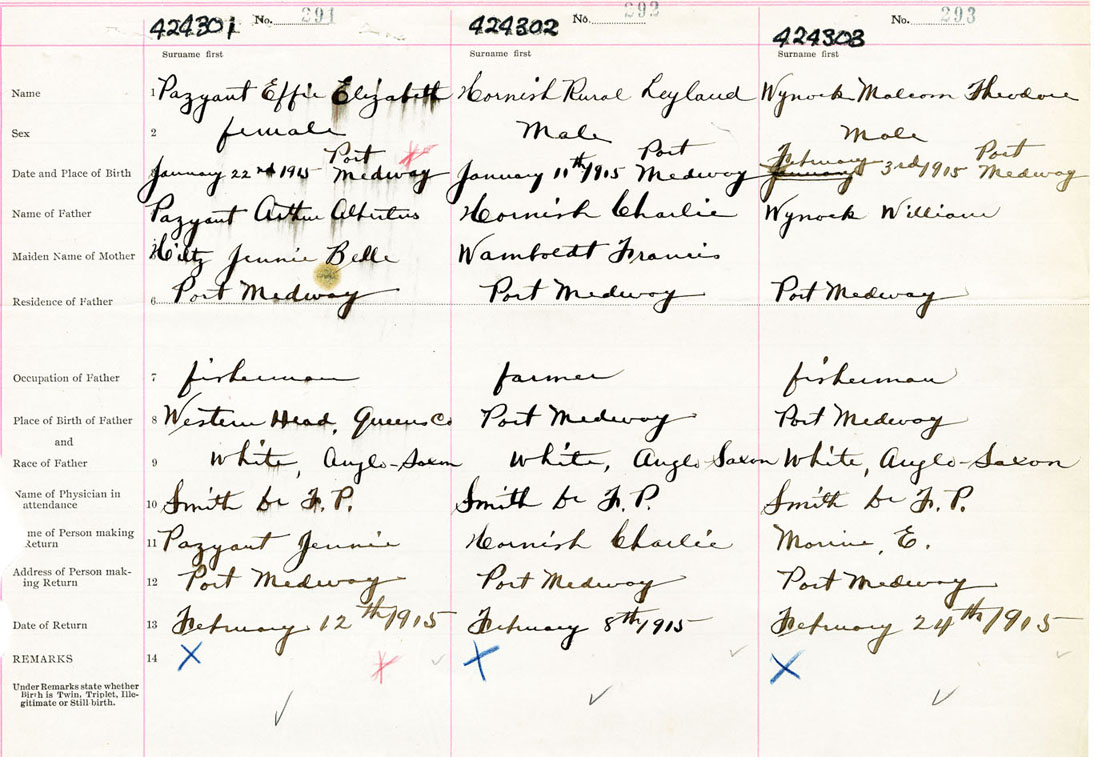 No. 291 No. 292 No. 293
424301 424302 424303
Surname first Surname first Surname first
Name 1 Pazyant Effie Elizabeth Hornish Rural Leyland Wynock Malcom Theodore
Sex 2 female Male Male
Date and Place of Birth January 22nd 1915 Port Medway January 11th 1915 Port Medway January February 3rd 1915 Port Medway
Name of Father Pazyant Arthur Albertus Hornish Charlie Wynock William
Maiden Name of Mother Hiltz Jennie Belle Wamboldt Francis
Residence of Father 6 Port Medway Port Medway Port Medway
Occupation of Father 7 fisherman farmer fisherman
Place of Birth of Father 8 Western Head, Queens Co Port Medway Port Medway
and
Race of Father 9 White, Anglo-Saxon White, Anglo-Saxon White, Anglo-Saxon
Name of Physician in
attendance 10 Smith Dr F. P. Smith Dr F. P. Smith Dr F. P.
me of Person making
Return 11 Pazyant Jennie Hornish Charlie Morine, E.
Address of Person mak-
ing Return 12 Port Medway Port Medway Port Medway
Date of Return 13 February 12th 1915 February 8th 1915 February 24th 1915
REMARKS 14
Under Remarks state whether
Birth is Twin, Triplet, Ille-
gitimate or Still-birth.